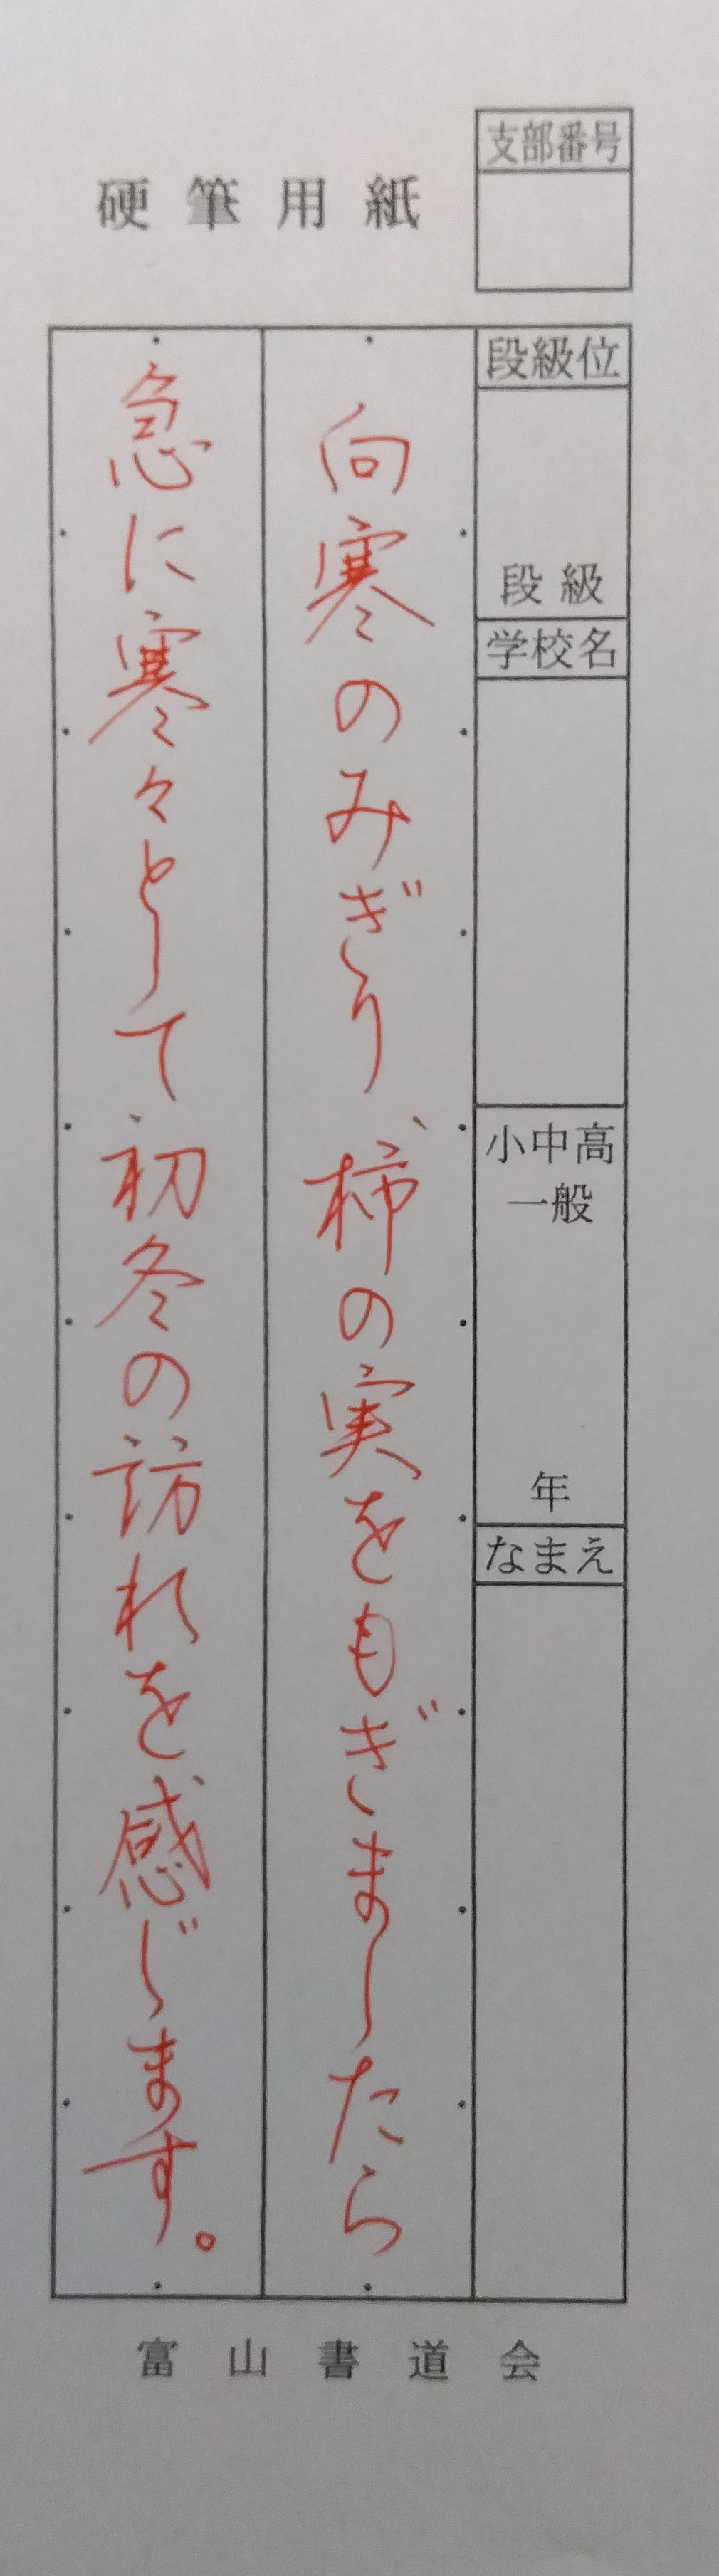 硬筆用紙
支部番号
段級位
段級
学校名
小中高
一般
年
なまえ
向寒のみぎり、柿の実をもぎましたら
急に寒々として初冬の訪れを感じます。
富山書道会